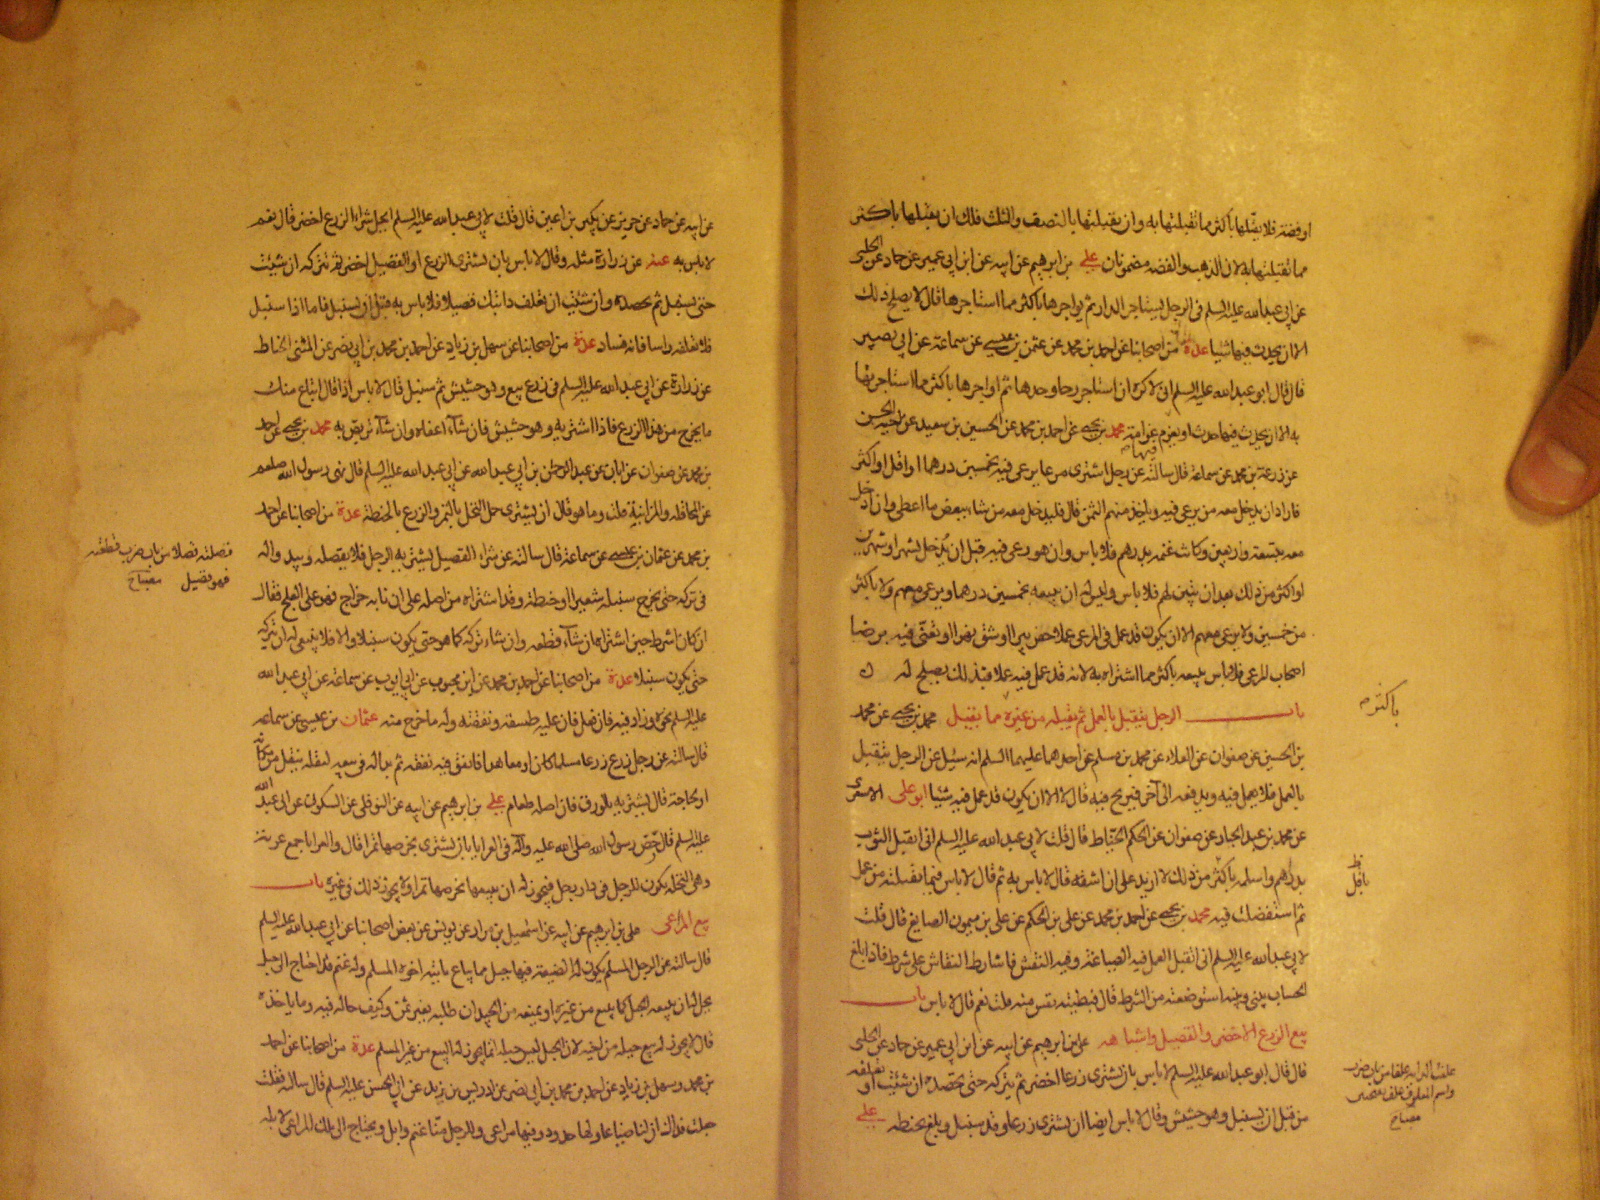 او فضة فلا يقبلها باكثر مما تقبلتها به وان تقبلتها بالنصف والثلث فلك ان تقبلها باكثر
مما تقبلتها به لان الذهب والفضه مضمونان علي بن ابرهيم عن ابيه عن ابن ابي عمير عن حماد عن الحلبى
عن ابي عبد الله عليه السلم في الرجل يستاجر الدار ثم يواجرها باكثر مما استاجرها قال لا يصلح ذلك
الا ان يحدث فيها شيئا عدة من اصحابنا عن احمد بن محمد عن عثمن بن عيسى عن سماعة عن ابي بصير
قال قال ابو عبد الله عليه السلم اني لاكره ان استاجر رحا وحدها ثم اواجرها باكثر مما استاجرتها
به الا ان يحدث فيها حدث او يغرم فيها غرامة محمد بن يحيى عن احمد بن محمد عن الحسين بن سعيد عن اخيه الحسن
عن زرعة بن محمد عن سماعة قال سالته عن رجل اشترى مرعا يرعى فيه بخمسين درهما او اقل او اكثر
فاراد ان يدخل معه من يرعى فيه وياخذ منهم الثمن قال فليدخل معه من شاء ببعض ما اعطى وان ادخل
معه بتسعة واربعين وكانت غنمه بدرهم فلا باس وان هو رعى فيه قبل ان يدخل بشهر او شهرين
او اكثر من ذلك بعد ان يبين لهم فلا باس وليس له ان يبيعه بخمسين درهما ويرعى معهم ولا باكثر
من خمسين ولا يرعى معهم الا ان يكون قد عمل في المرعى عملا حفر بيرا او شق نهرا او تعنى فيه برضا
اصحاب المرعى فلا باس ببيعه باكثر مما اشتراه به لانه قد عمل فيه عملا فبذلك يصلح له
باب الرجل يتقبل بالعمل ثم يقبله من غيره مما يقبل محمد بن يحيى عن محمد
بن الحسين عن صفوان عن العلاء عن محمد بن مسلم عن احدهما عليهما السلم انه سئل عن الرجل يتقبل
بالعمل فلا يعمل فيه ويدفعه الى آخر فيربح فيه قال لا الا ان يكون قد عمل فيه شيئا ابو علي الاشعرى
عن محمد بن عبد الجبار عن صفوان عن الحكم الخياط قال قلت لابي عبد الله عليه السلم اني اتقبل الثوب
بدراهم واسلمه باكثر من ذلك لا ازيد على ان اشقه قال لا باس به ثم قال لا باس فيما تقبلته من عمل
ثم استفضلت فيه محمد بن يحيى عن احمد بن محمد عن علي بن الحكم عن علي بن ميمون الصايغ قال قلت
لابي عبد الله عليه السلم اني اتقبل العمل فيه الصياغة وفيه النقش فاشارط النقاش على شرط فاذا بلغ
الحساب بيني وبينه استوضعته من الشرط قال فبطيبة نفس منه قلت نعم قال لا باس باب
بيع الزرع الاخضر والقصيل واشباهه علي بن ابرهيم عن ابيه عن ابن ابي عمير عن حماد عن الحلبى
قال قال ابو عبد الله عليه السلم لا باس بان تشترى زرعا اخضر ثم يتركه حتى تحصده ان شئت او تعلفه
من قبل ان يسنبل وهو حشيش وقال لا باس ايضا ان يشترى زرعا وقد سنبل وبلغ بحنطه علي
باكثر م
علف الدابة علفا من باب ضرب
واسم المعلوف علف
مصباح
عن ابيه عن حماد عن حريز عن بكير بن اعين قال قلت لابي عبد الله عليه السلم ايحل شراء الزرع اخضر قال نعم
لا باس به عنه عن زرارة مثله وقال لا باس بان يشترى الزرع او القصيل اخضر ثم تتركه ان شئت
حتى يسنبل ثم تحصده وان شئت ان تعلف دابتك قصيلا فلا باس به قبل ان يسنبل فاما اذا سنبل
فلا تعلفه راسا فانه فساد عدة من اصحابنا عن سهل بن زياد عن احمد بن محمد بن ابي نصر عن المثنى الحناط
عن زرارة عن ابي عبد الله عليه السلم في زرع بيع وهو حشيش ثم سنبل قال لا باس اذا قال ابتاع منك
ما يخرج من هذا الزرع فاذا اشتريه وهو حشيش فان شآء اعفاه وان شآء تربص به محمد بن يحيى عن احمد
بن محمد عن صفوان عن ابان عن عبد الرحمن بن ابي عبد الله عن ابي عبد الله عليه السلم قال نهى رسول الله صلعم
عن المحاقله والمزابنة قلت وما هو قال ان يشترى حمل النخل بالتمر والزرع بالحنطة عدة من اصحابنا عن احمد
بن محمد عن عثمان بن عيسى عن سماعة قال سالته عن شراء القصيل يشتريه الرجل فلا يقصله ويبدو له
في تركه حتى يخرج سنبله شعيرا او حنطة وقد اشتراه من اصله على ان ما به خراج فهو على العلج فقال
ان كان اشترط حين اشتراه ان شآء قطعه وان شاء تركه كما هو حتى يكون سنبلا والا فلا ينبغى له ان يتركه
حتى يكون سنبلا عدة من اصحابنا عن احمد بن محمد عن ابن محبوب عن ابي ايوب عن سماعة عن ابي عبد الله
عليه السلم نحوه وزاد فيه فان فعل فان عليه طسقه ونفقته وله ما خرج منه عثمان بن عيسى عن سماعة
قال سالته عن رجل زرع زرعا مسلما كان او معاهدا فانفق فيه نفقة ثم بدا له في بيعه لنقله ينتقل من مكانه
او لحاجة قال يشتريه بالورق فان اصله طعام علي بن ابرهيم عن ابيه عن النوفلى عن السكونى عن ابي عبد الله
عليه السلم قال رخص رسول الله صلى الله عليه وآله في العرايا بان يشترى بخرصها تمرا قال والعرايا جمع عرية
وهى النخلة يكون للرجل في دار رجل فيجوز له ان يبيعها بخرصها تمرا ولا يجوز ذلك في غيره باب
بيع المراعى علي بن ابرهيم عن ابيه عن اسمعيل بن مرار عن يونس عن بعض اصحابنا عن ابي عبد الله عليه السلم
قال سالته عن الرجل المسلم يكون له الضيعة فيها جبل مما يباع ياتيه اخوه المسلم وله غنم قد احتاج الى جبل
يحل له ان يبيعه الجبل كما يبيع من غيره او يمنعه من الجبل ان طلبه بغير ثمن وكيف حاله فيه وما ياخذه
قال لا يجوز له بيع جبله من اخيه لان الجبل ليس جبله انما يجوز له البيع من غير المسلم عدة من اصحابنا عن احمد
بن محمد وسهل بن زياد عن احمد بن محمد بن ابي نصر عن ادريس بن زيد عن ابي الحسن عليه السلم قال سالته فقلت
جعلت فداك ان لنا ضياعا ولها حدود وفيها مراعى وللرجل منا غنم وابل ويحتاج الى تلك المراعى لابله
قصلته قصلا من باب ضرب قطعته
فهو قصيل مصباح